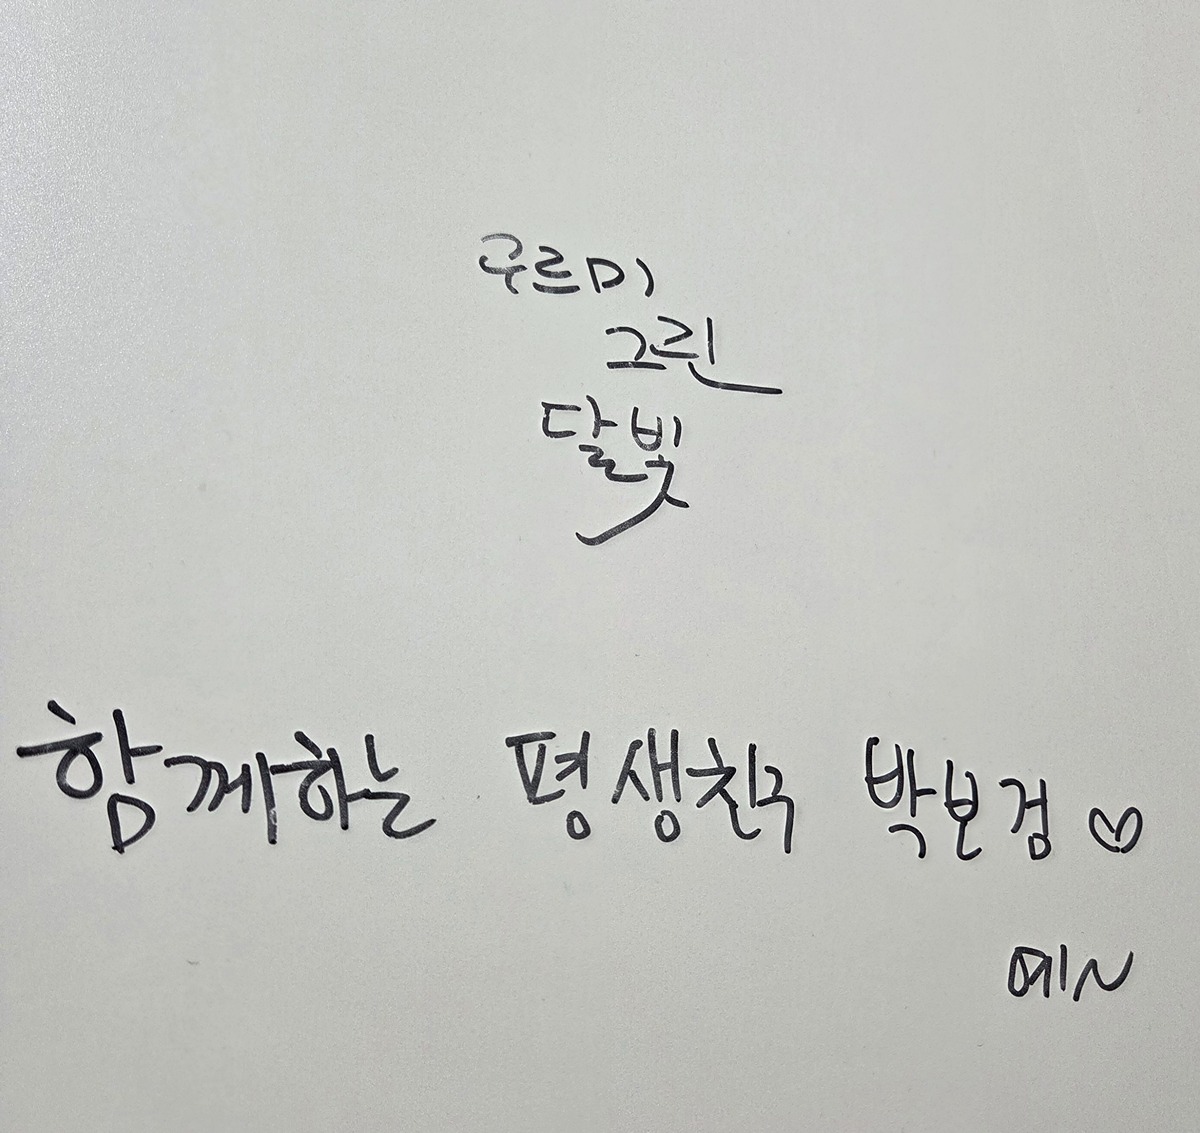 구르미
그린
달빛
함께하는 평생친구 박보검♡